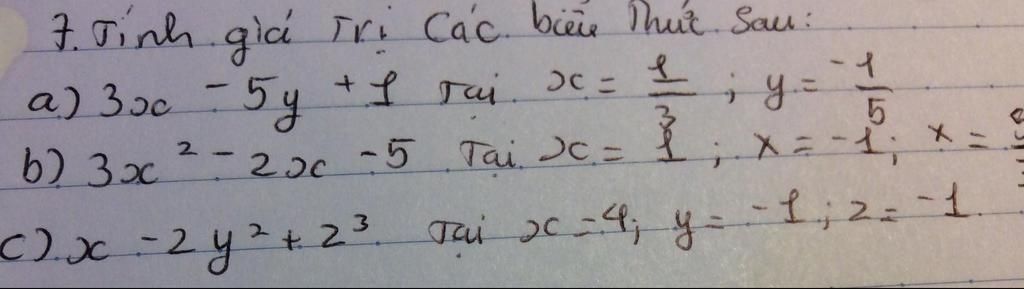 7. Tính giá Trị Các biểu Thức Sau:
a) 3x - 5y + 1 Tại x = 1/3 ; y = -1/5
b) 3x² - 2x - 5 Tại x = 1 ; x = -1 ; x =
c) x - 2y² + z³ Tại x = 4; y = -1 ; z = -1